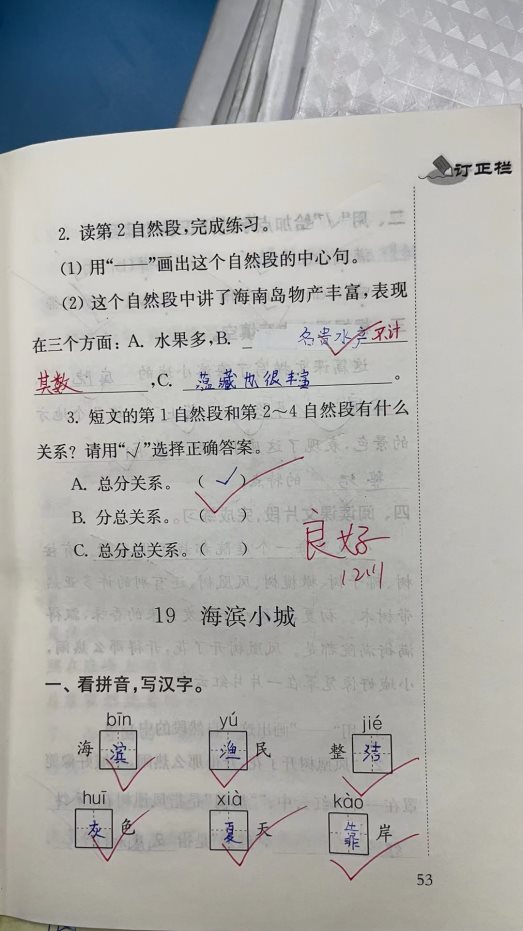 订正栏
2. 读第2自然段,完成练习。
(1) 用“——”画出这个自然段的中心句。
(2) 这个自然段中讲了海南岛物产丰富,表现
在三个方面: A. 水果多,B. 名贵水产不计
其数,C. 蕴藏也很丰富。
3. 短文的第1自然段和第2~4自然段有什么
关系? 请用“√”选择正确答案。
A. 总分关系。 (√)
B. 分总关系。 ( )
C. 总分总关系。 ( )
良好
19 海滨小城
一、看拼音,写汉字。
bīn yú jié
海滨 渔民 整洁
huī xià kào
灰色 夏天 靠岸
53